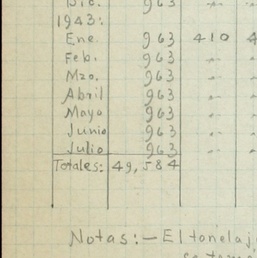 Dic. 963 " "
1943:
Ene. 963 410 4
Feb. 963 " "
Mzo. 963 " "
Abril 963 " "
Mayo 963 " "
Junio 963 " "
Julio 963 " "
Totales: 49,584
Notas:- El tonelaj